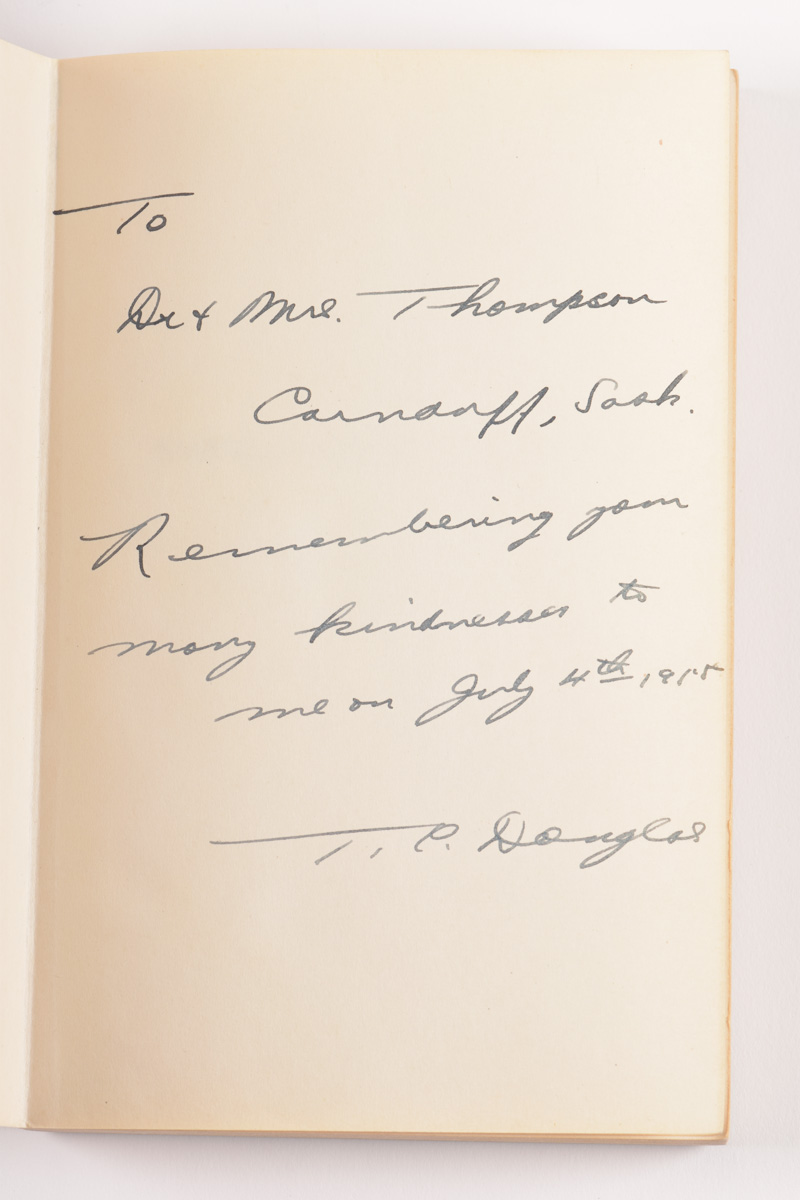 To
Dr & Mrs. Thompson
Carnduff, Sask.
Remembering your
many kindnesses to
me on July 4th,
T. C. Douglas